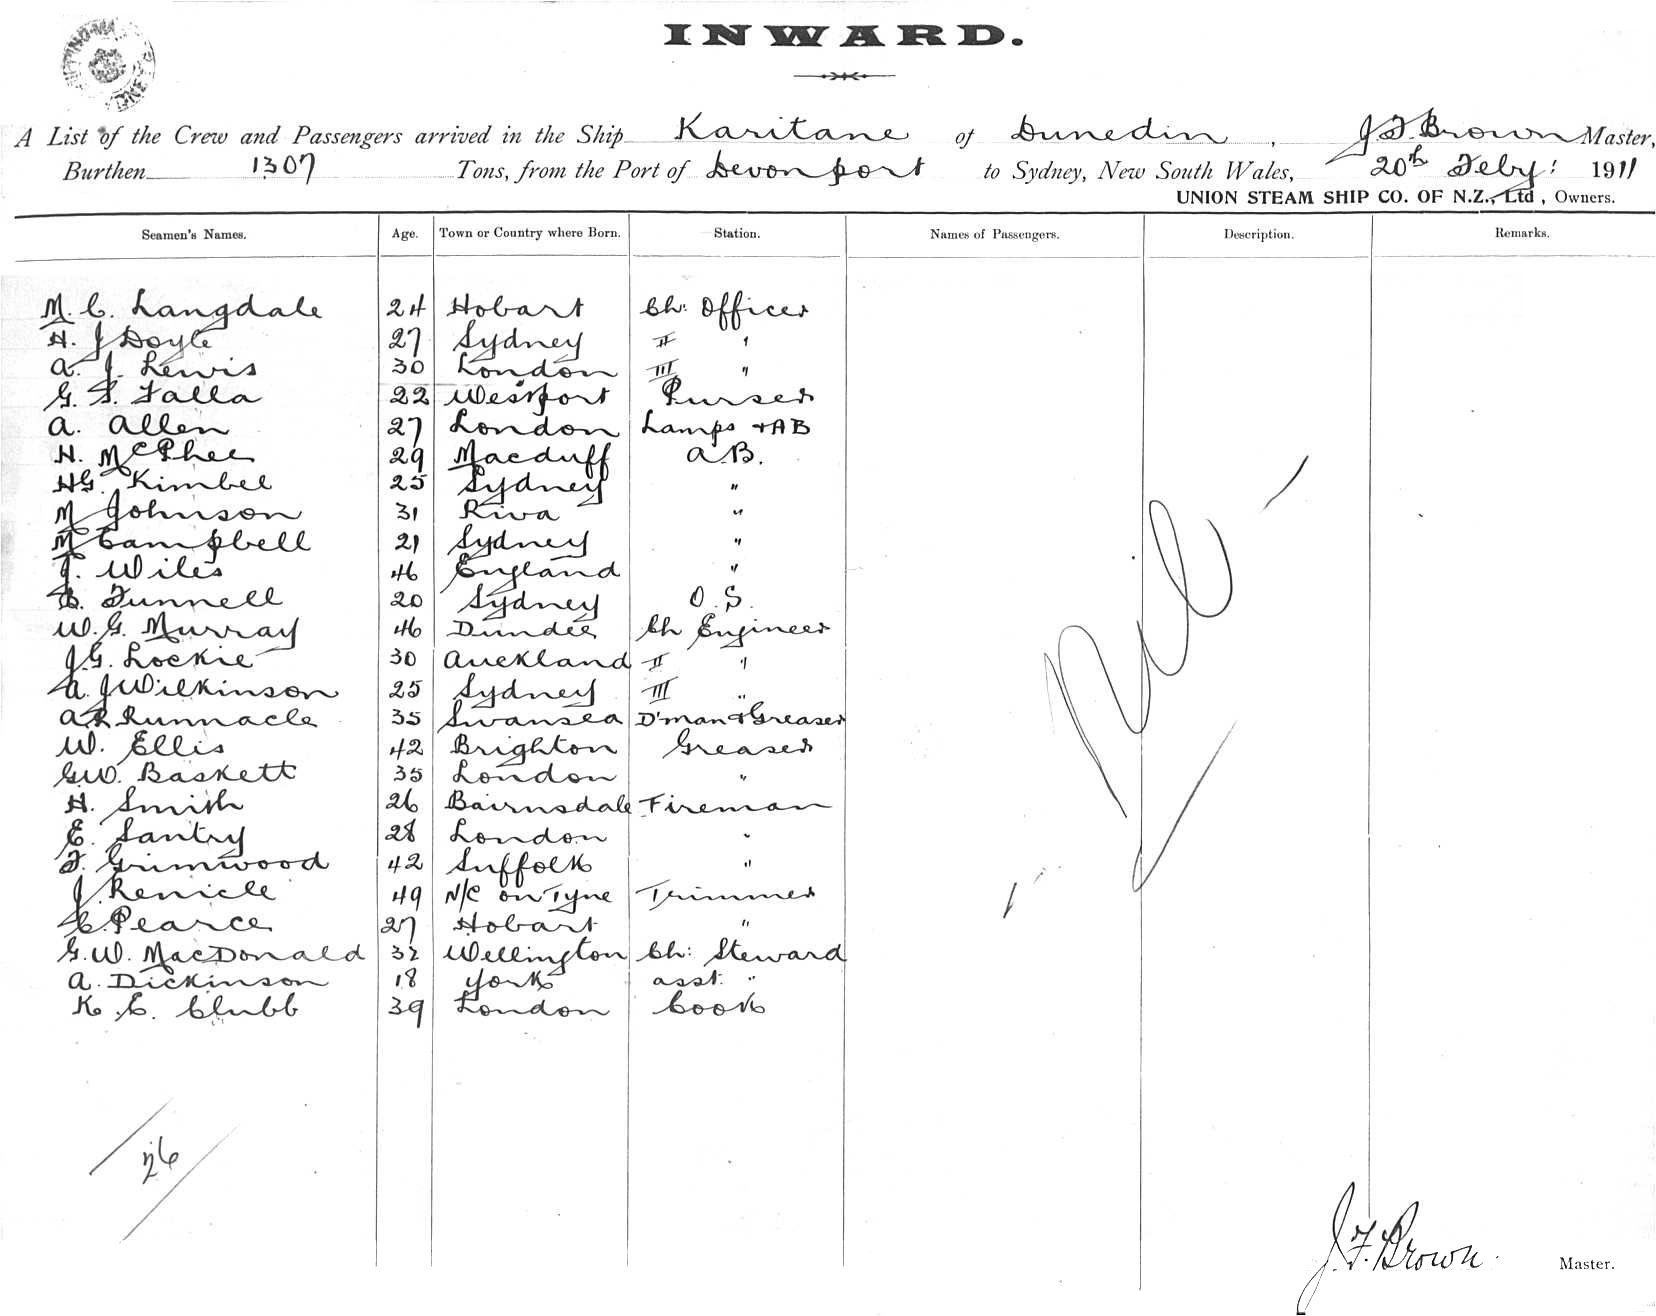 INWARD.
A List of the Crew and Passengers arrived in the Ship Karitane of Dunedin, J F. Brown Master,
Burthen 1307 Tons, from the Port of Devonport to Sydney, New South Wales, 20th Feby: 1911
UNION STEAM SHIP CO. OF N.Z., Ltd, Owners.
Seamen's Names. Age. Town or Country where Born. Station. Names of Passengers. Description. Remarks.
M. C. Langdale 24 Hobart Ch: Officer
H. J Doyle 27 Sydney II "
A. J. Lewis 30 London III "
G. F. Falla 22 Westport Purser
A. Allen 27 London Lamps + AB
H. McPhee 29 Macduff A.B.
HG. Kimbel 25 Sydney "
M Johnson 31 Riva "
M Campbell 21 Sydney "
J. Wiles 46 England "
Funnell 20 Sydney O.S.
W. G. Murray 46 Dundee Ch Engineer
J.G. Lockie 30 Auckland II "
A. J Wilkinson 25 Sydney III "
A R Runnacle 35 Swansea D'man & Greaser
W. Ellis 42 Brighton Greaser
G.W. Baskett 35 London "
H. Smith 26 Bairnsdale Fireman
E. Santry 28 London "
F. Grimwood 42 Suffolk "
J. Renicle 49 N/C on Tyne Trimmer
C. Pearce 27 Hobart "
G. W. MacDonald 32 Wellington Ch: Steward
A. Dickinson 18 York asst. "
K. E. Clubb 39 London Cook
- Nil -
26
J. F. Brown. Master.